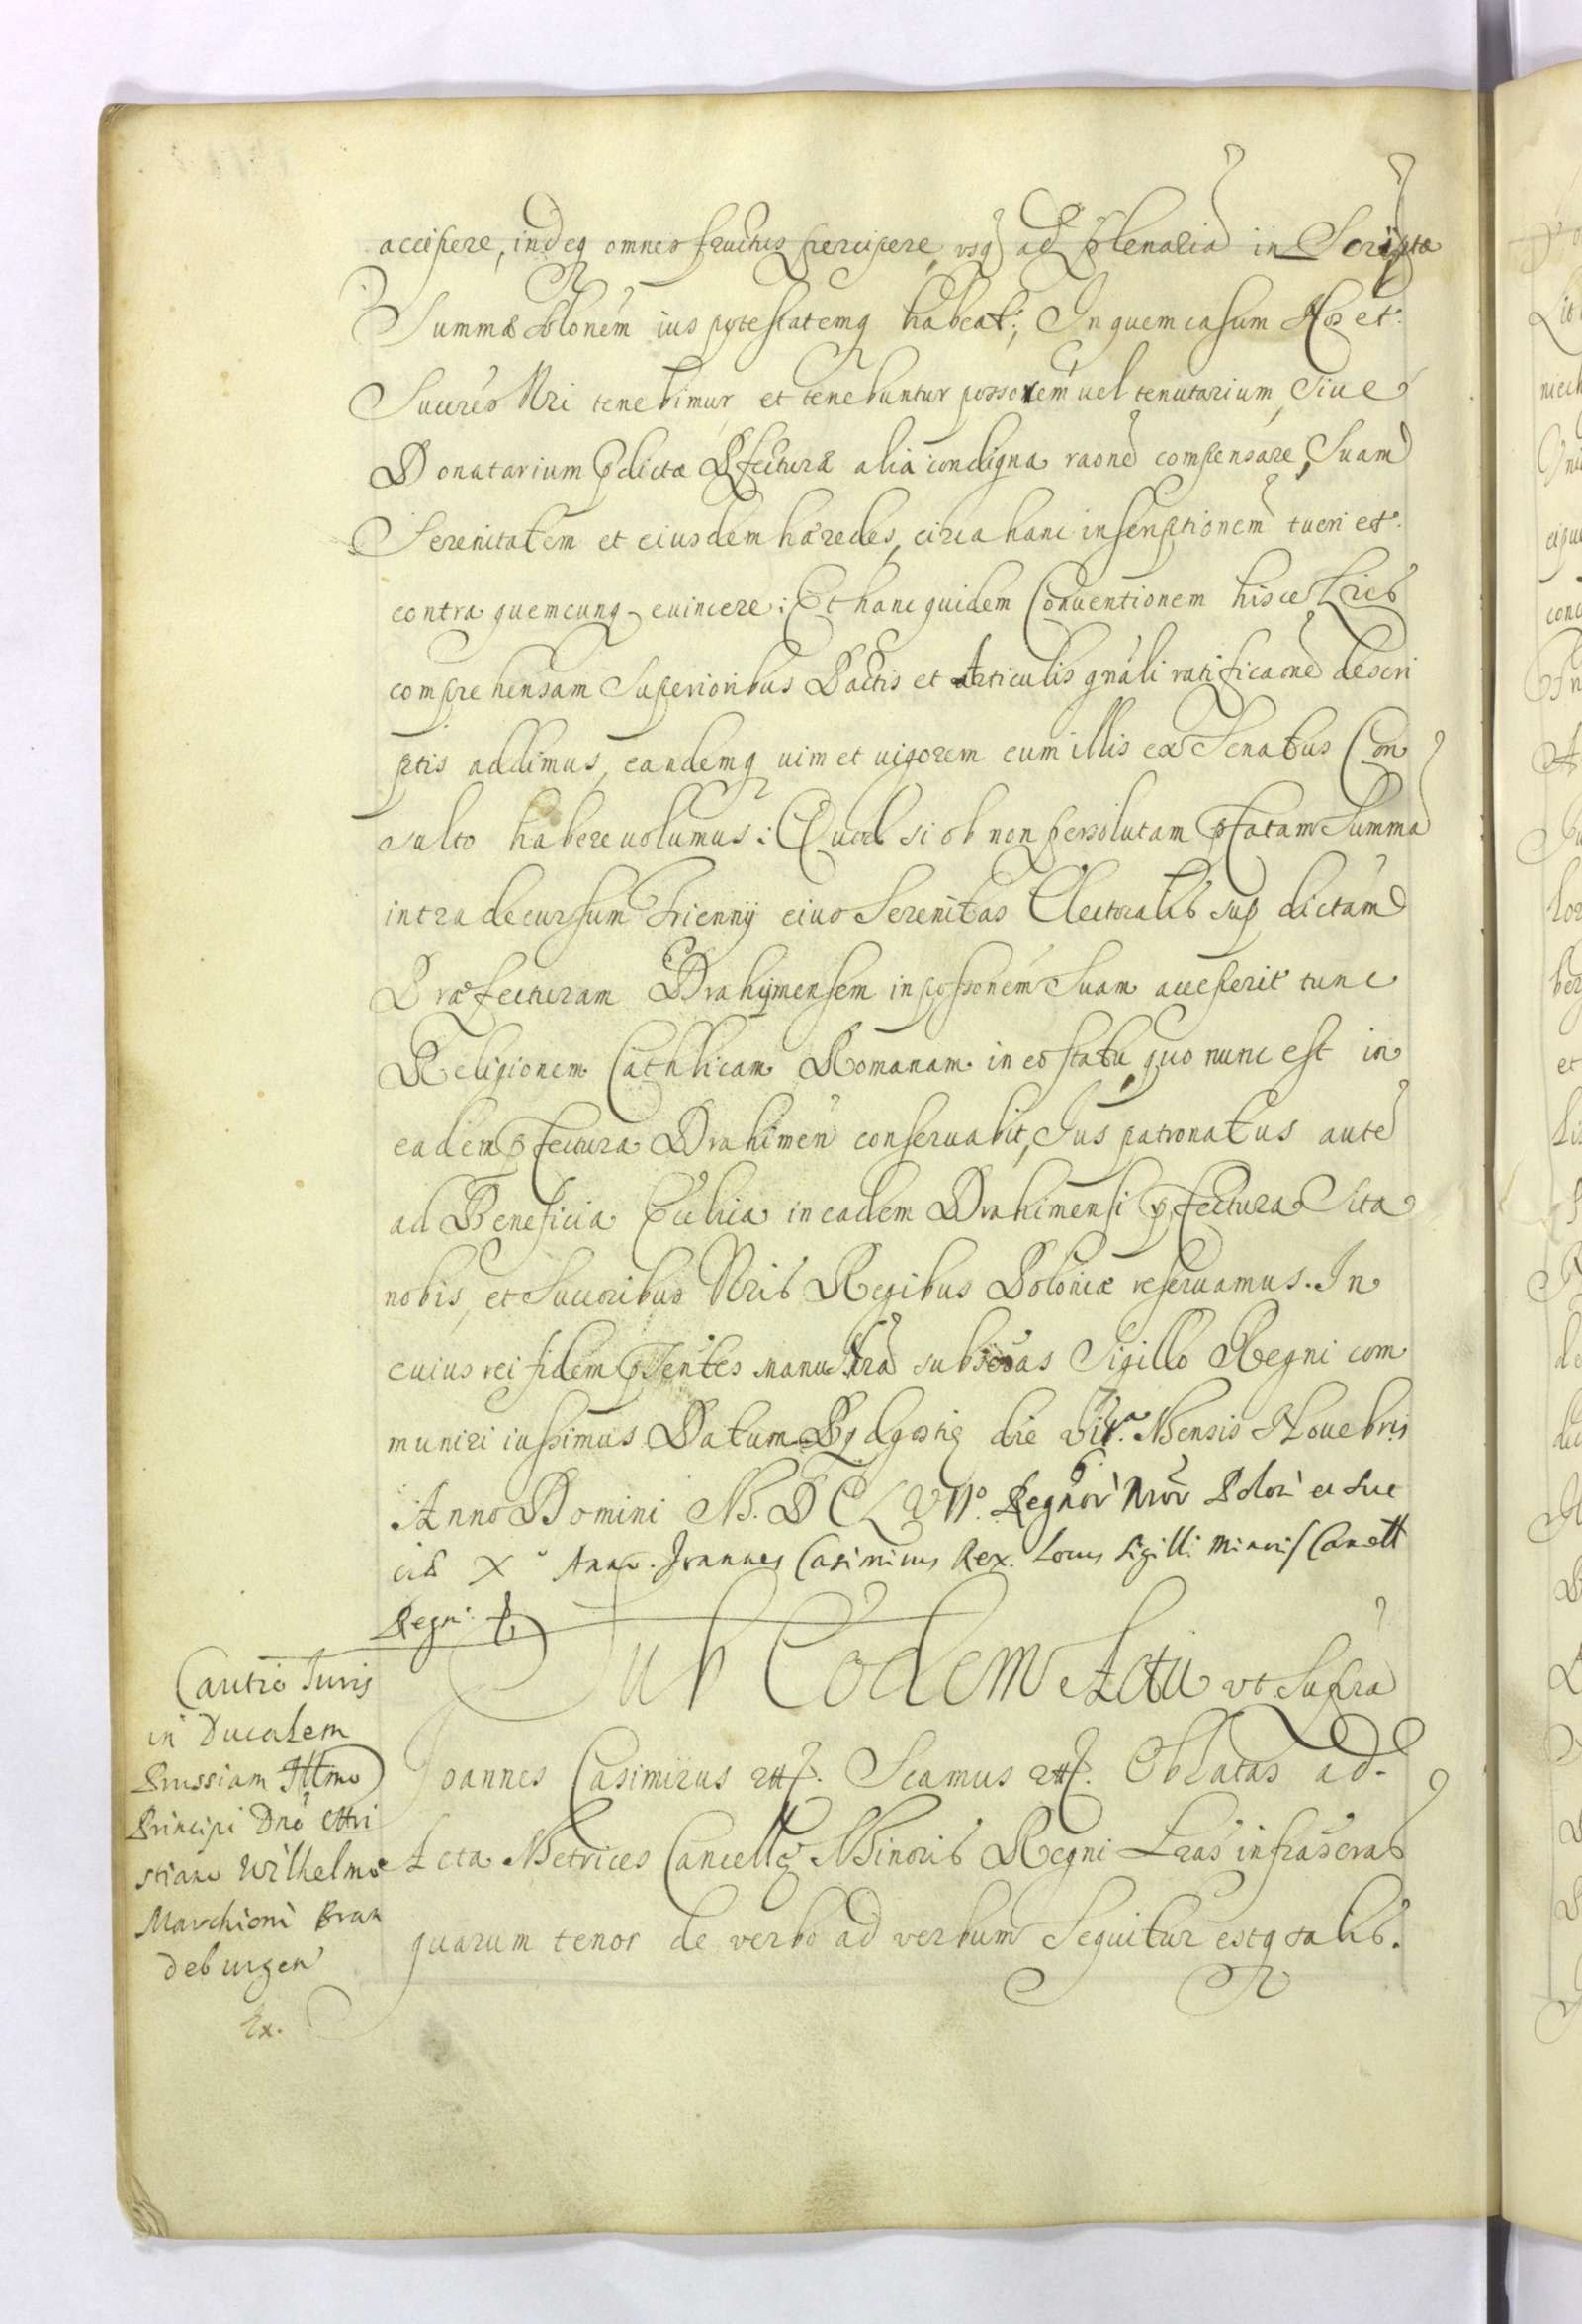 accipere, indeq omnes fructus percipere, usq ad plenariã in Scriptæ
Summæ solonem ius potestatemq habeat; In quem casum Nos et
Succres Nri tenebimur et tenebuntur possorem uel tenutarium, Siue
Donatarium pdictæ Pfecturæ alia condigna raone compensare, Suam
Serenitatem et eiusdem hæredes, circa hanc inscriptionem tueri et
contra quemcunq euincere: Et hanc quidem Conuentionem hisce Lris
comprehensam Superioribus Pactis et Articulis gnali ratificaone descri
ptis addimus, eandemq uim et uigorem cum illis ex Senatus Con
sulto habere uolumus: Quod si ob non persolutam pfatam Summã
intra decursum Triennij eius Serenitas Electoralis sup dictam
Præfecturam Drahijmensem in possonem Suam acceperit tunc
Religionem Cathlicam Romanam in eo statu, quo nunc est in
eadem pfectura Drahimen conseruabit, Ius patronatus aute
ad Beneficia Ecclica in eadem Drahimensi pfectura Sita
nobis, et Succoribus Nris Regibus Poloniæ reseruamus. In
cuius rei fidem psentes manu Nra subscras Sigillo Regni com
muniri iussimus Datum Bydgostiæ die VI.ª Mensis Nouebris
Anno Domini M. D C L VII.º Regnor Nror Polon et Sue
ciæ Xº Anno. Joannes Casimirus Rex. Locus Sigilli Minoris Cancell
Regni
Sub Eodem Actu vt Supra
Cautio Iuris
in Ducalem
Prussiam Illmo
Principi Dno Chri
stiano Wilhelmo
Marchioni Bran
deburgen
Ex.
Joannes Casimirus etc. Scamus etc. Oblatas ad
Acta Metrices Cancellæ Minoris Regni Lras infrascras
quarum tenor de verbo ad verbum Sequitur estq talis.